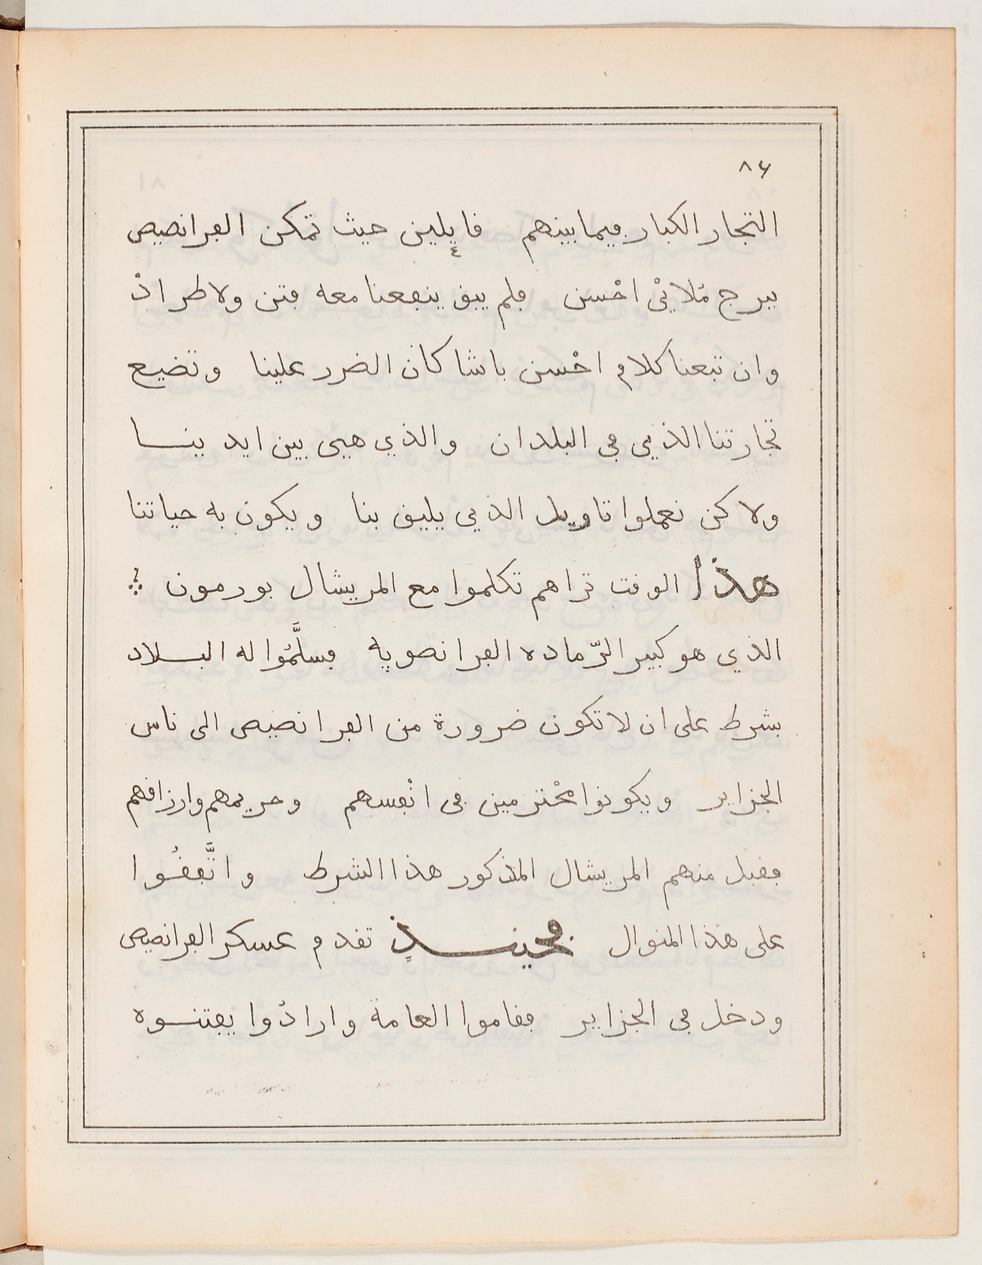 ٨٤
التجار الكبار فيما بينهم قايلين حيث تمكن الفرانصيص
ببرج مُلَايْ احْسن فلم يبق ينفعنا معه فتن ولا طرادْ
وان تبعنا كلام احْسن باشا كان الضرر علينا وتضيع
تجارتنا الذي في البلدان والذي هيى بين ايدينا
ولاكن نعملوا تاويل الذي يليق بنا ويكون به حياتنا
هذا الوقت تراهم تكلموا مع المريشال بورمون
الذي هو كبير الرّماده الفرانصويه فسلَّمُوا له البلاد
بشرط على ان لا تكون ضرورة من الفرانصيص الى ناس
الجزاير ويكونوا محْترمين في انْفسهم وحريمهم وارزاقهم
فقبل منهم المريشال المذكور هذا الشرط واتَّفقُوا
على هذا المنوال فحينيذٍ تقدم عسكر الفرانصيص
ودخل في الجزاير فقاموا العامة وارادُوا يفتنوه